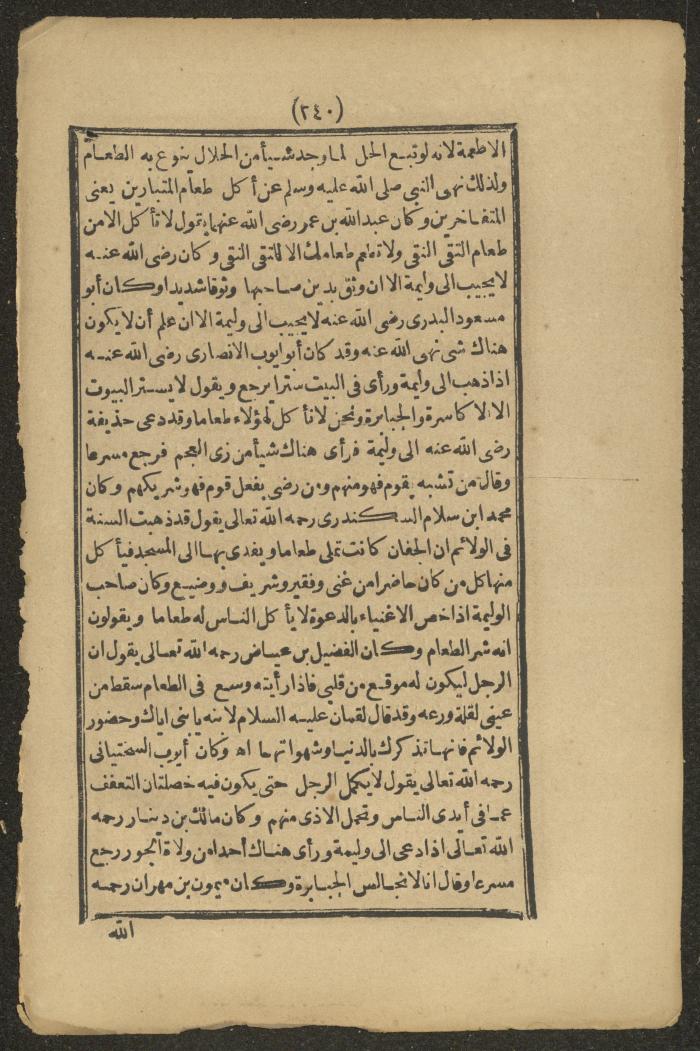 (٢٤٠)
الاطعمة لانه لو تتبع الحل لما وجد شيأ من الحلال ينوع به الطعام
ولذلك نهى النبى صلى الله عليه وسلم عن أكل طعام المتبارين يعنى
المتفاخرين وكان عبد الله بن عمر رضى الله عنهما يقول لا تأكل الا من
طعام التقى النقى ولا تطعم طعامك الا للتقى النقى وكان رضى الله عنه
لا يجيب الى وليمة الا ان وثق بدين صاحبها وثوقا شديدا وكان أبو
مسعود البدرى رضى الله عنه لا يجيب الى وليمة الا ان علم أن لا يكون
هناك شى نهى الله عنه وقد كان أبو ايوب الانصارى رضى الله عنه
اذا ذهب الى وليمة ورأى فى البيت سترا يرجع ويقول لا يستر البيوت
الا الاكاسرة والجبابرة ونحن لا نأكل لهؤلاء طعاما وقد دعى حذيفة
رضى الله عنه الى وليمة فرأى هناك شيأ من زى العجم فرجع مسرعا
وقال من تشبه بقوم فهو منهم ومن رضى بفعل قوم فهو شريكهم وكان
محمد ابن سلام السكندرى رحمه الله تعالى يقول قد ذهبت السنة
فى الولائم ان الجفان كانت تملى طعاما ويغدى بها الى المسجد فيأكل
منها كل من كان حاضرا من غنى وفقير وشريف ووضيع وكان صاحب
الوليمة اذا خص الاغنياء بالدعوة لا يأكل الناس له طعاما ويقولون
انه شر الطعام وكان الفضيل بن عياض رحمه الله تعالى يقول ان
الرجل ليكون له موقع من قلبى فاذا رأيته وسع فى الطعام سقط من
عينى لقلة ورعه وقد قال لقمان عليه السلام لابنه يا بنى اياك وحضور
الولائم فانها تذكرك بالدنيا وشهواتها اه وكان أيوب السختيانى
رحمه الله تعالى يقول لا يكمل الرجل حتى يكون فيه خصلتان التعفف
عما فى أيدى الناس وتحمل الاذى منهم وكان مالك بن دينار رحمه
الله تعالى اذا دعى الى وليمة ورأى هناك أحدا من ولاة الجور رجع
مسرعا وقال انا لا نجالس الجبابرة وكان ميمون بن مهران رحمه
الله